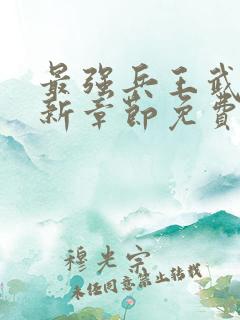 最强兵王武
新章節免費
穆光宗
未经同意禁止转载